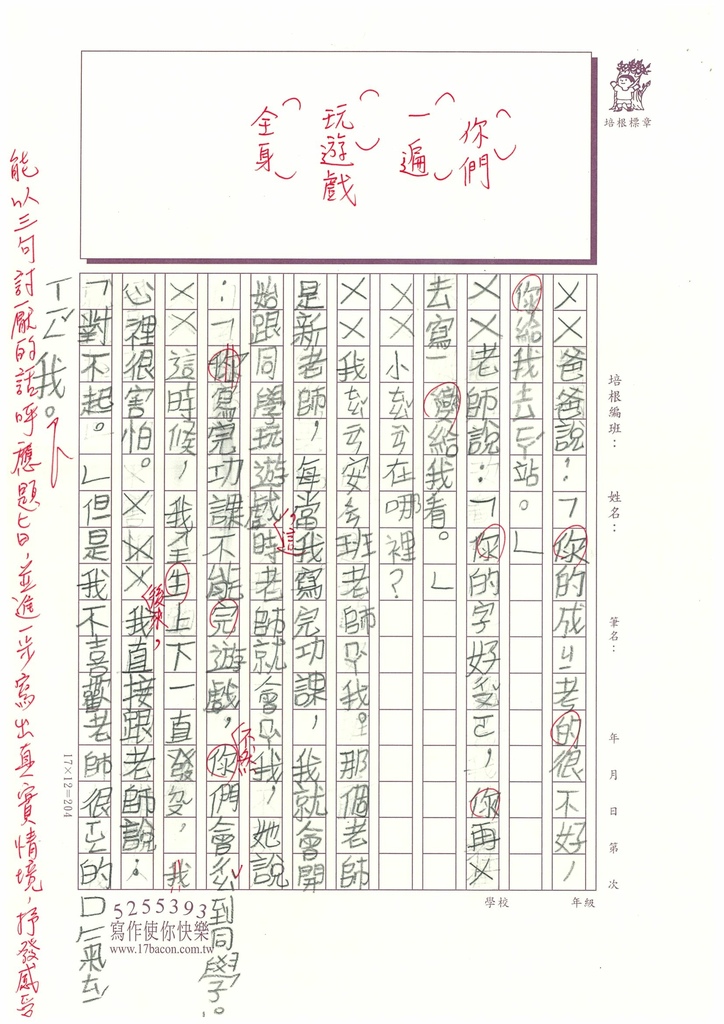 你們
一遍
玩遊戲
全身
培根標章
培根編班：
姓名：
筆名：
年 月 日 第 次
學校
年級
ㄨㄨ爸爸說：「你的成ㄐㄧ老的很不好，
你給我去ㄈㄚ站。」
ㄨㄨ老師說：「你的字好ㄆㄛ，你再ㄨ
去寫一給我看。」
ㄨㄨ小在哪裡？
ㄨㄨ我安班老師我。那個老師
是新老師，每當我寫完功課，我就會開
始跟同學玩遊戲時這老師就會我，她說
：「你寫完功課不能完遊戲，不然你們會到同學。
ㄨㄨ這時候，我全生上下一直發，我
心裡很害怕。ㄨㄨㄨ後來，我直接跟老師說：
「對不起。」但是我不喜歡老師很的口氣去
我。
能以三句討厭的話呼應題目，並進一步寫出真實情境，抒發感受
17×12=204
5255393
寫作使你快樂
www.17bacon.com.tw